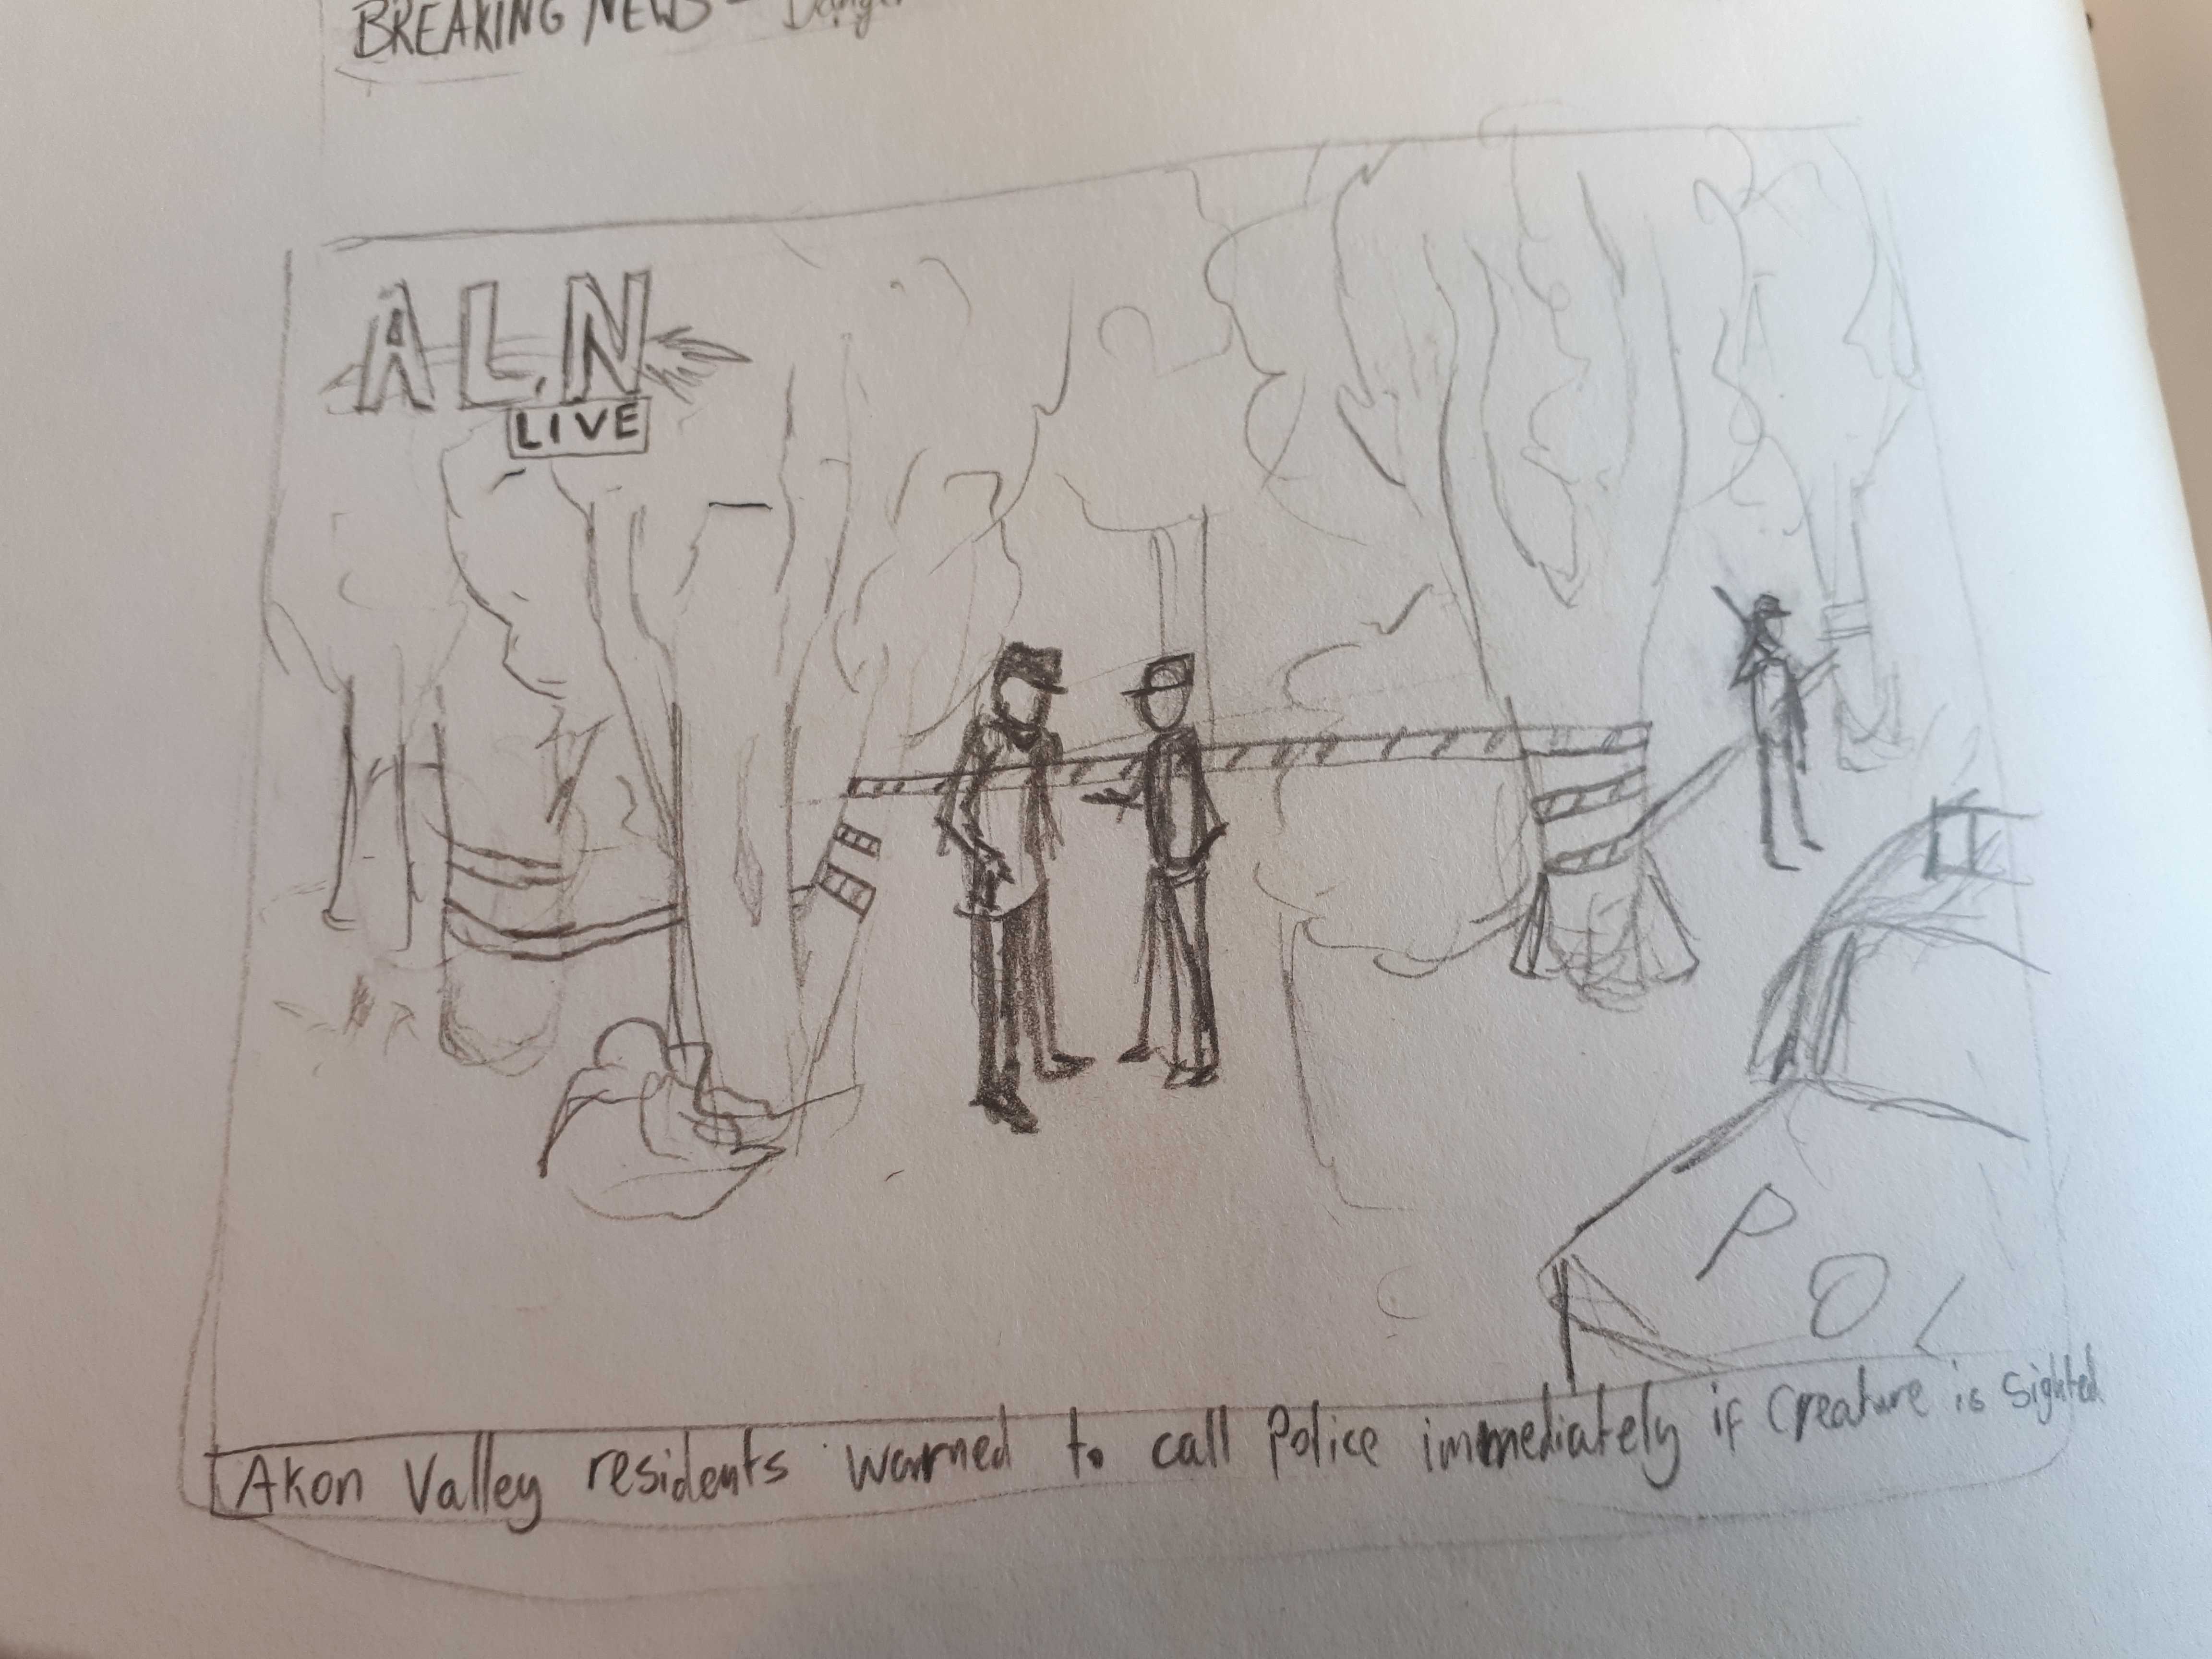 BREAKING NEWS - Danger
ALN
LIVE
POL
Akon Valley residents warned to call Police immediately if Creature is Sighted